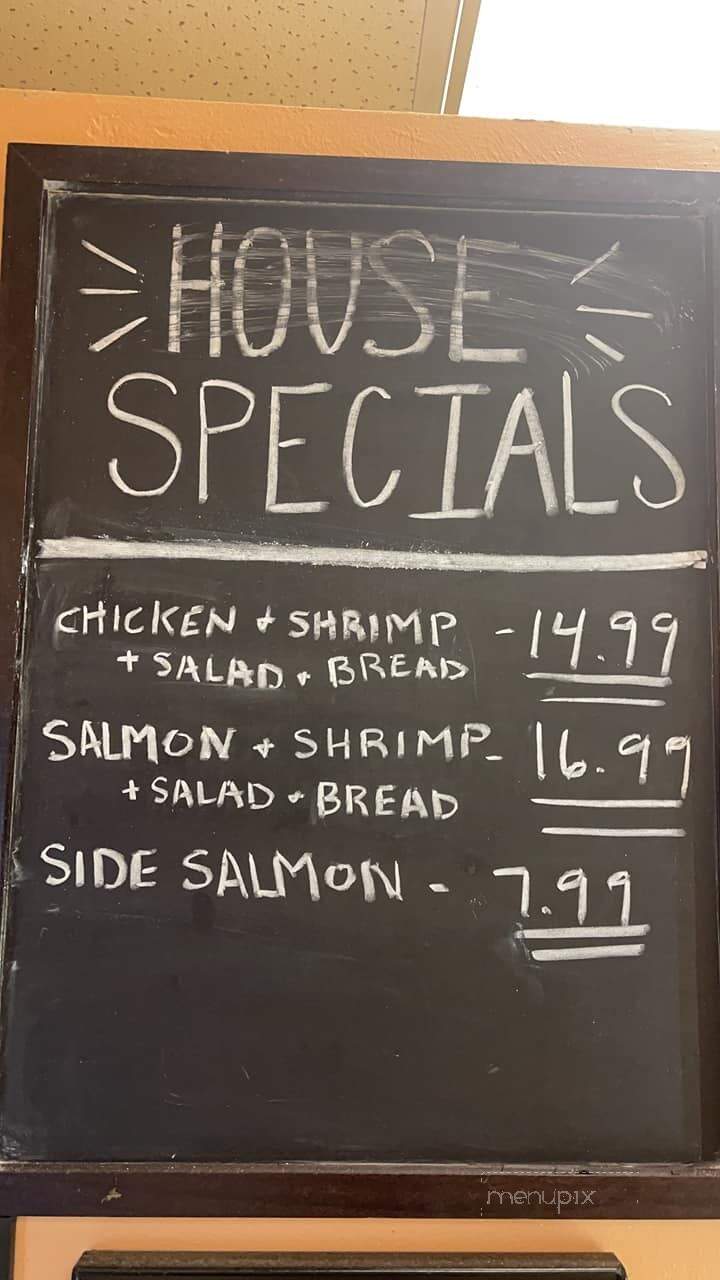 HOUSE
SPECIALS
CHICKEN + SHRIMP - 14.99
+ SALAD + BREAD
SALMON + SHRIMP - 16.99
+ SALAD + BREAD
SIDE SALMON - 7.99
menupix